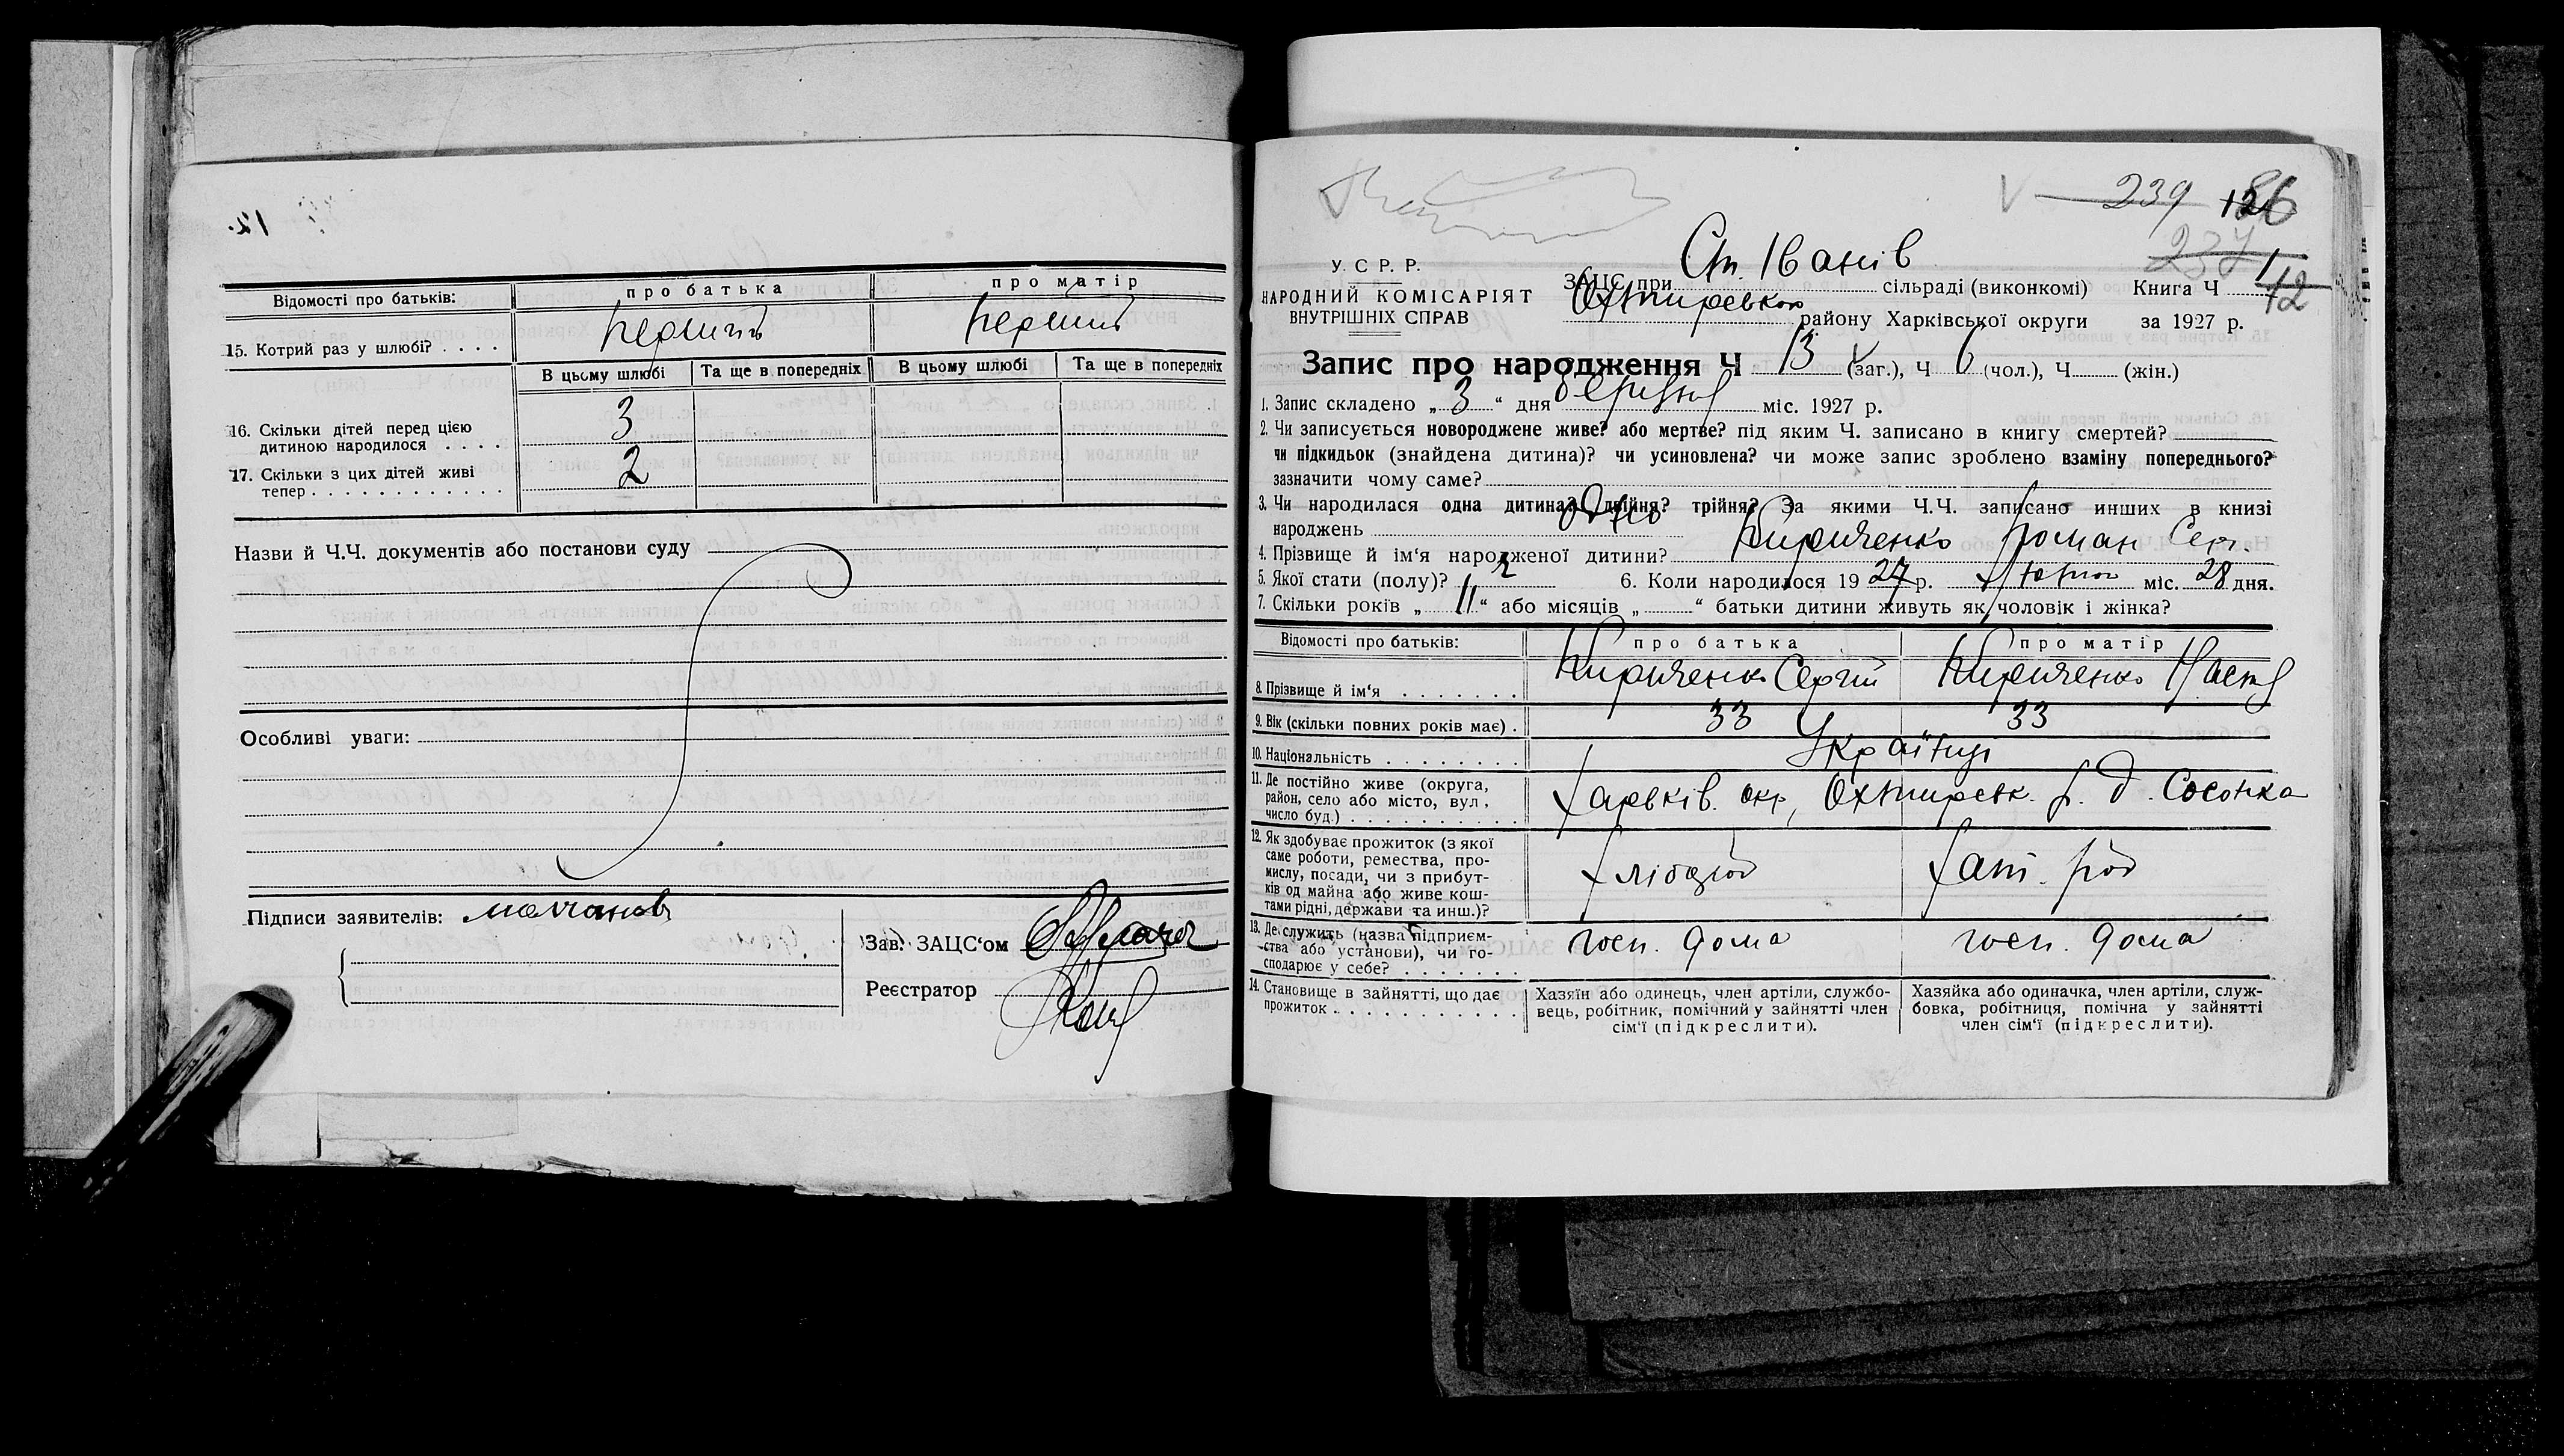 12.
Відомості про батьків: про батька про матір
15. Котрий раз у шлюбі? . . . . перший перший
В цьому шлюбі Та ще в попередніх В цьому шлюбі Та ще в попередніх
16. Скільки дітей перед цією
дитиною народилося . . . . 3
17. Скільки з цих дітей живі
тепер . . . . . . . . . . . . 2
Назви й Ч.Ч. документів або постанови суду
Особливі уваги:
Підписи заявителів: молчанов
Зав. ЗАЦС‘ом
Реєстратор
239 126
237
У. С Р. Р.
НАРОДНИЙ КОМІСАРІЯТ
ВНУТРІШНІХ СПРАВ
ЗАЦС при Ст. Іванів сільраді (виконкомі) Книга Ч 1/12
Охтиревкого району Харківської округи за 1927 р.
Запис про народження Ч 13 (заг.), Ч 6 (чол.), Ч (жін.)
1. Запис складено „ 3 “ дня березня міс. 1927 р.
2. Чи записується новороджене живе? або мертве? під яким Ч. записано в книгу смертей?
чи підкидьок (знайдена дитина)? чи усиновлена? чи може запис зроблено взаміну попереднього?
зазначити чому саме?
3. Чи народилася одна дитина? двійня? трійня? За якими Ч.Ч. записано инших в книзі
народжень одно
4. Прізвище й ім‘я народженої дитини? Кириченко Роман Серг.
5. Якої стати (полу)? ч 6. Коли народилося 19 27 р. Лютого міс. 28 дня.
7. Скільки років „ 11 “ або місяців „ “ батьки дитини живуть як чоловік і жінка?
Відомості про батьків: про батька про матір
8. Прізвище й ім‘я . . . . . . . Кириченко Сергій Кириченко Настя
9. Вік (скільки повних років має) . 33 33
10. Національність . . . . . . . . Українці
11. Де постійно живе (округа,
район, село або місто, вул.,
число буд.) . . . . . . . . . . Харьків. окр, Охтирськ. р. д. Сосонка
12. Як здобуває прожиток (з якої
саме роботи, ремества, про-
мислу, посади, чи з прибут-
ків од майна або живе кош-
тами рідні, держави та инш.)? хлібороб хат. роб
13. Де служить (назва підприєм-
ства або установи), чи го-
сподарює у себе? . . . . . . . госп. дома госп. дома
14. Становище в зайнятті, що дає
прожиток . . . . . . . . . . .
Хазяїн або одинець, член артіли, службо-
вець, робітник, помічний у зайнятті член
сім‘ї (підкреслити).
Хазяйка або одиначка, член артіли, служ-
бовка, робітниця, помічна у зайнятті
член сім‘ї (підкреслити).